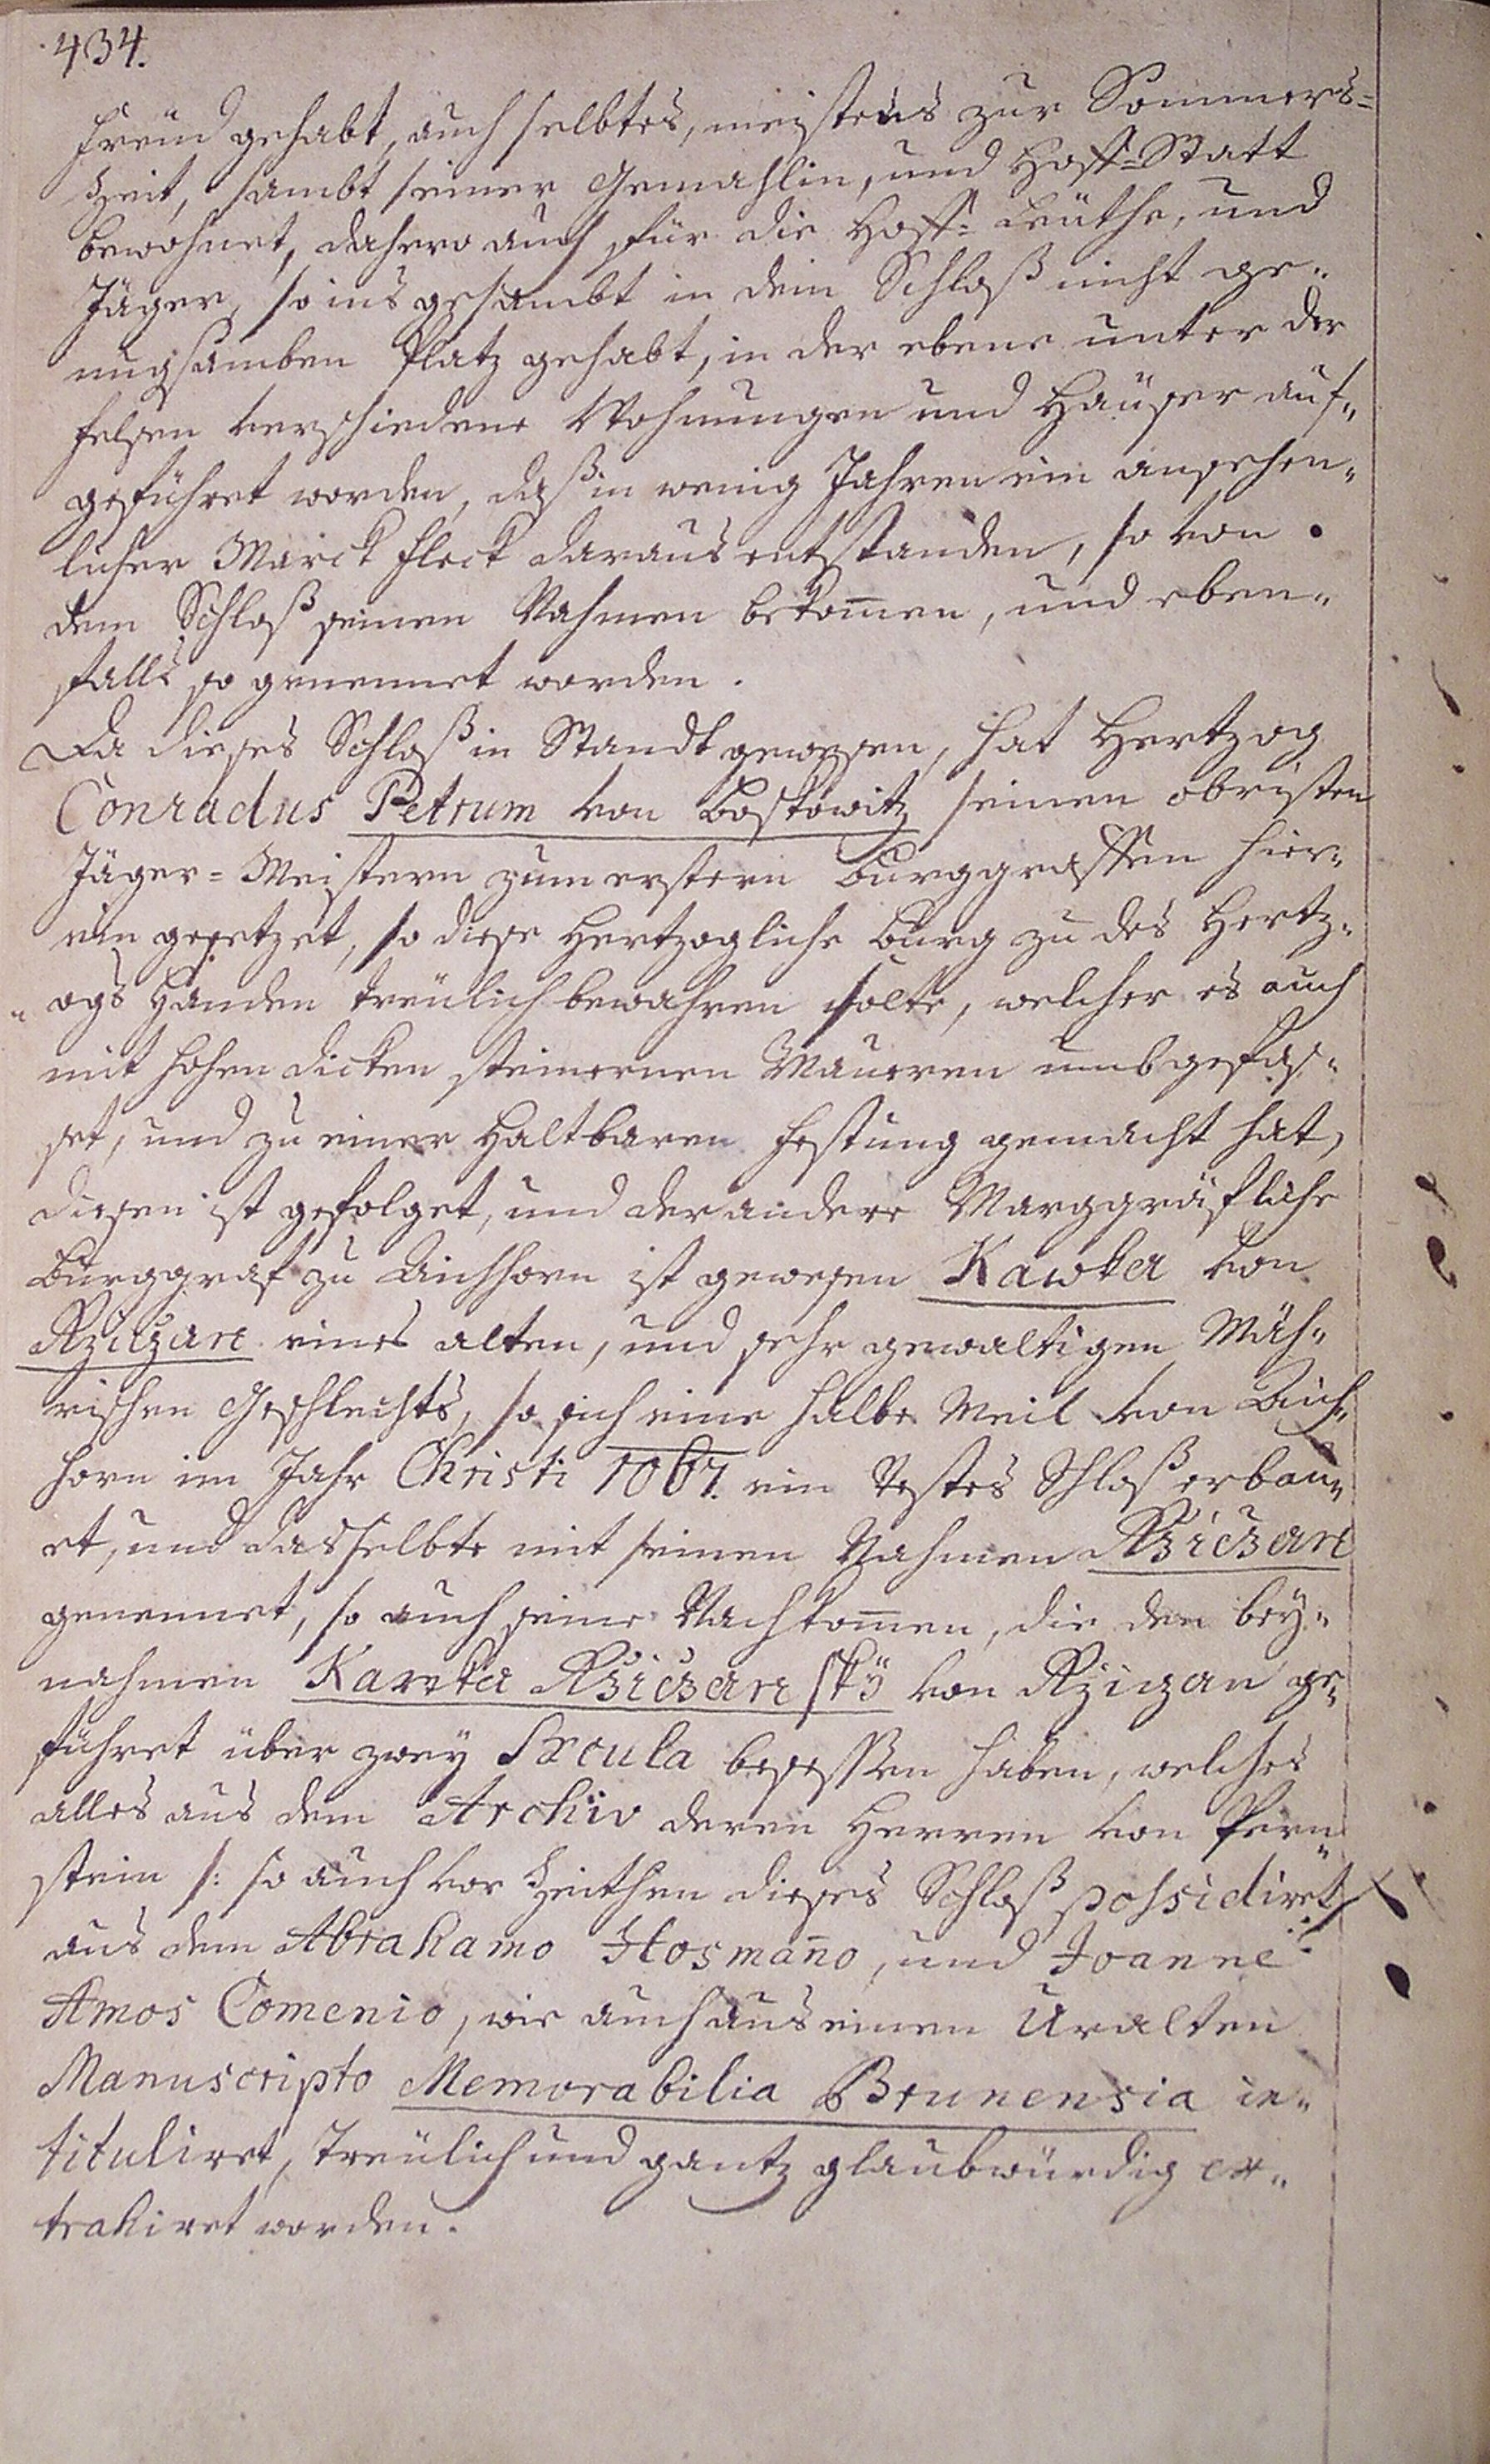 434.
Freud gehabt, auch selbtes, meistens zur Sommers=
Zeit, sambt seiner Gemahlin, und Hoff=Statt
bewohnet, dahero auch für die Hoff= Leüthe, und
Jäger, so ins gesambt in dem Schloß nicht ge=
nugsamben Platz gehabt, in der ebene unter der
Felsen verschiedene Wohnungen und Häuser auf=
geführet worden, daß in wenig Jahren ein ansehen=
licher Marck Fleck daraus entstanden, so von
dem Schloß seinen Nahmen bekom̅en, und eben=
falls so genennet worden.
Da dieses Schloß in Standt gewesen, hat Hertzog
Conradus Petrum von Boskowitz seinen obristen
Jäger=Meistern zum erstern Burggraffen hier=
ein gesetzet, so diese Hertzogliche Burg zu des Hertz=
=ogs Handen treulich bewahren solte, welcher es auch
mit hohen dicken steinernen Mauren umbgefas=
set, und zu einer Haltbaren Festung gemacht hat,
diesen ist gefolget, und der andere Marggräfliche
Burggraf zu Aichhorn ist gewesen Kawka von
Rziczan eines alten, und sehr gewaltigen Mäh=
rischen Geschlechts, so sich eine halbe Meil von Aich=
horn im Jahr Christi 1067. ein Vestes Schloß erbau=
et, und dasselbte mit seinen Nahmen Rziczan
genennet, so auch seine Nachkom̅en, die den bey=
nahmen Kawka Rziczanskÿ von Rziczan ge=
führet über zwey Sæcula besessen haben, welches
alles aus dem Archiv deren Herren von Pern=
stein /: so auch vor Zeithen dieses Schloß possidiret :/
aus dem Abrahamo Hosman̅o, und Joanne
Amos Comenio, wie auch aus einen Uralten
Manuscripto Memorabilia Brunensia in=
tituliret, treülich und gantz glaubwürdig ex=
trahiret worden.